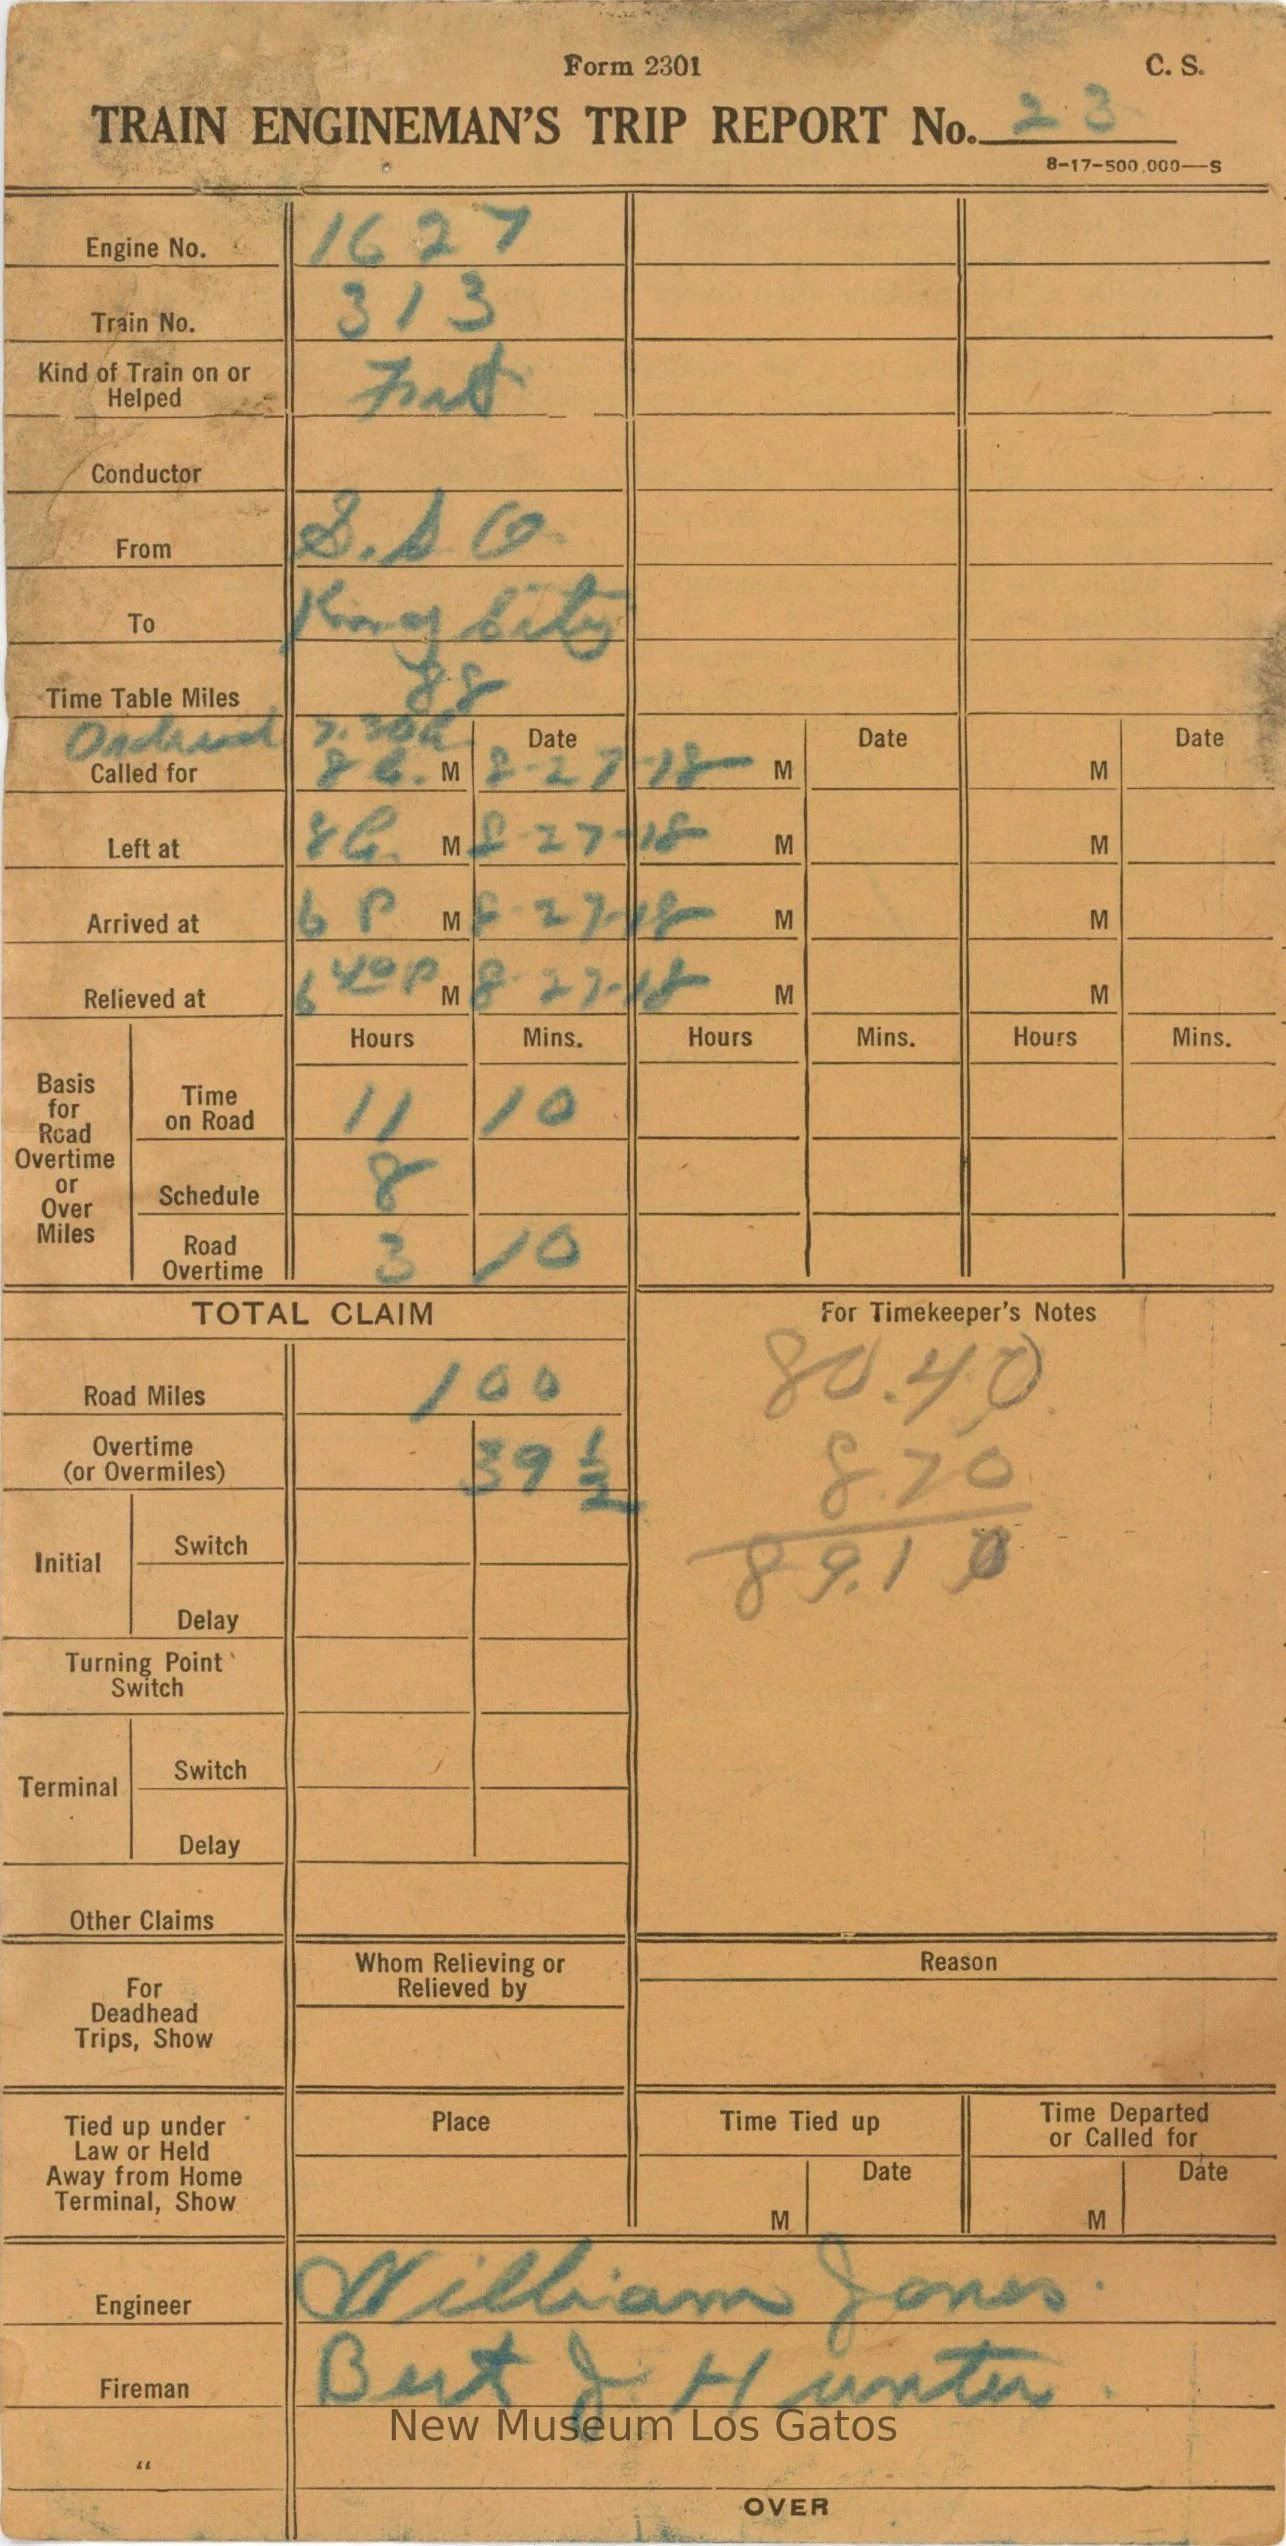 Form 2301
C. S.
TRAIN ENGINEMAN'S TRIP REPORT No. 23
8-17-500,000—S
Engine No. 1627
Train No. 313
Kind of Train on or Helped Frt
Conductor
From S.S O.
To King City
Time Table Miles 88
Ordered 7.30a Date Date Date
Called for 8 a. M 8-27-18 M M
Left at 8 a. M 8-27-18 M M
Arrived at 6 P M 8-27-18 M M
Relieved at 6 40 P M 8-27-18 M M
Basis for Road Overtime or Over Miles
Hours Mins. Hours Mins. Hours Mins.
Time on Road 11 10
Schedule 8
Road Overtime 3 10
TOTAL CLAIM
Road Miles 100
Overtime (or Overmiles) 39 1/2
Initial
Switch
Delay
Turning Point Switch
Terminal
Switch
Delay
Other Claims
For Timekeeper's Notes
80.40
8.70
89.10
For Deadhead Trips, Show
Whom Relieving or Relieved by
Reason
Tied up under Law or Held Away from Home Terminal, Show
Place
Time Tied up
M Date
Time Departed or Called for
M Date
Engineer William Jones.
Fireman Bert J Hunter.
"
New Museum Los Gatos
OVER